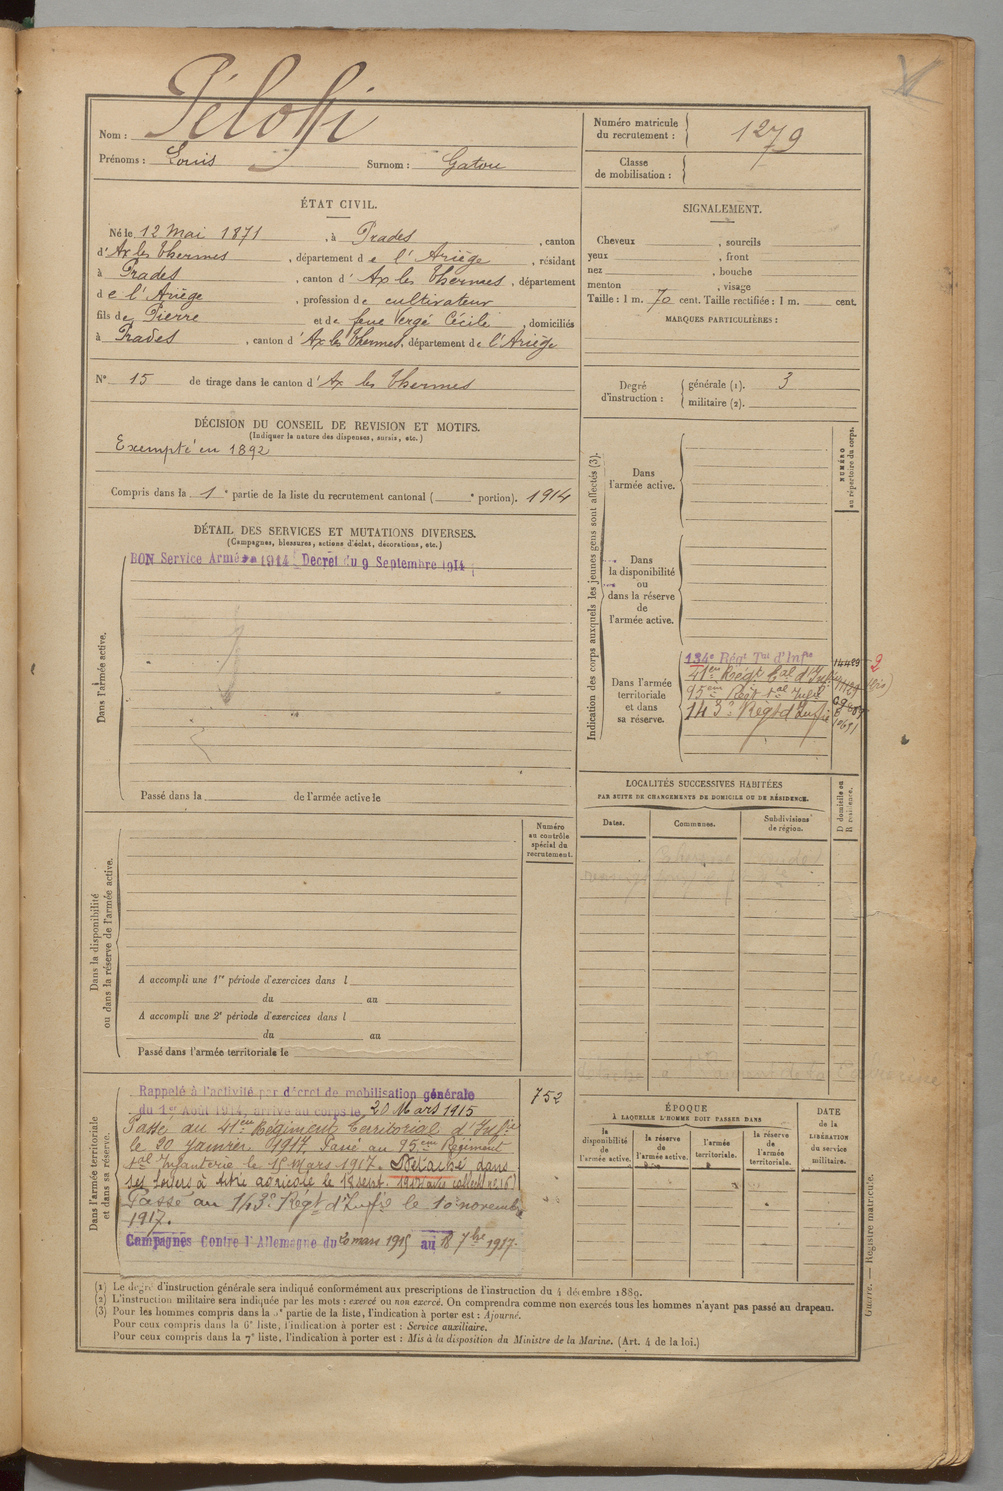 Nom : Péloffi
Prénoms : Louis Surnom : Gatou
Numéro matricule du recrutement : 1279
Classe de mobilisation :
ÉTAT CIVIL.
Né le 12 Mai 1871, à Prades, canton
d'Ax les Thermes, département de l'Ariège, résidant
à Prades, canton d'Ax les Thermes, département
de l'Ariège, profession de cultivateur
fils de Pierre et de feue Vergé Cécile, domiciliés
à Prades, canton d'Ax les Thermes, département de l'Ariège
N° 15 de tirage dans le canton d'Ax les Thermes
SIGNALEMENT.
Cheveux , sourcils
yeux , front
nez , bouche
menton , visage
Taille : 1 m. 70 cent. Taille rectifiée : 1 m. cent.
MARQUES PARTICULIÈRES :
Degré d'instruction : générale (1). 3
militaire (2).
DÉCISION DU CONSEIL DE REVISION ET MOTIFS.
(Indiquer la nature des dispenses, sursis, etc.)
Exempté en 1892
Compris dans la 1e partie de la liste du recrutement cantonal ( e portion). 1914
DÉTAIL DES SERVICES ET MUTATIONS DIVERSES.
(Campagnes, blessures, actions d'éclat, décorations, etc.)
BON Service Armé 1914 Decret du 9 Septembre 1914
Dans l'armée active.
Passé dans la de l'armée active le
Indication des corps auxquels les jeunes gens sont affectés (3).
NUMÉRO au répertoire du corps.
Dans l'armée active.
Dans la disponibilité ou dans la réserve de l'armée active.
Dans l'armée territoriale et dans sa réserve.
134e Régt Tal d'Infie
41em Régt tal d'Infie
95em Régt tal Infie
143e Régt d'Infie
2
LOCALITÉS SUCCESSIVES HABITÉES
PAR SUITE DE CHANGEMENTS DE DOMICILE OU DE RÉSIDENCE.
Dates. Communes. Subdivisions de région.
D domicile ou R résidence.
Dans la disponibilité ou dans la réserve de l'armée active.
Numéro au contrôle spécial du recrutement.
A accompli une 1re période d'exercices dans l
du au
A accompli une 2e période d'exercices dans l
du au
Passé dans l'armée territoriale le
Dans l'armée territoriale et dans sa réserve.
752
Rappelé à l'activité par décret de mobilisation générale
du 1er Août 1914, arrivé au corps le 20 Mars 1915
Passé au 41em Régiment Territorial d'Infie
le 20 janvier 1917. Passé au 95em Régiment
tal Infanterie le 15 Mars 1917. Détaché dans
ses foyers à titre agricole le 18 sept. 1917
Passé au 143e Régt d'Infie le 10 novembre
1917.
Campagnes Contre l'Allemagne du 20 mars 1915 au 18 7bre 1917.
ÉPOQUE
À LAQUELLE L'HOMME DOIT PASSER DANS
la disponibilité de l'armée active.
la réserve de l'armée active.
l'armée territoriale.
la réserve de l'armée territoriale.
DATE de la LIBÉRATION du service militaire.
(1) Le degré d'instruction générale sera indiqué conformément aux prescriptions de l'instruction du 4 décembre 1889.
(2) L'instruction militaire sera indiquée par les mots : exercé ou non exercé. On comprendra comme non exercés tous les hommes n'ayant pas passé au drapeau.
(3) Pour les hommes compris dans la 5e partie de la liste, l'indication à porter est : Ajourné.
Pour ceux compris dans la 6e liste, l'indication à porter est : Service auxiliaire.
Pour ceux compris dans la 7e liste, l'indication à porter est : Mis à la disposition du Ministre de la Marine. (Art. 4 de la loi.)
Guerre. — Registre matricule.